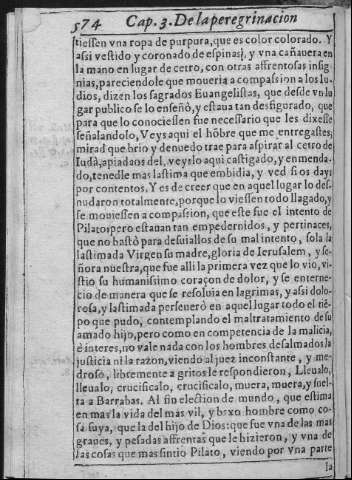 574 Cap. 3. De la peregrinacion
tiessen vna ropa de purpura, que es color colorado. Y
assi vestido y coronado de espinas, y vna cañauera en
la mano en lugar de cetro, con otras affrentosas insig
nias, pareciendole que moueria a compassion a los Iu-
dios, dizen los sagrados Euangelistas, que desde vn lu
gar publico se lo enseñò, y estaua tan desfigurado, que
para que lo conociessen fue necessario que les dixesse
señalandolo, Veys aqui el hõbre que me entregastes,
mirad que brio y denuedo trae para aspirar al cetro de
Iudà, apiadaos del, veyslo aqui castigado, y enmenda-
do, tenedle mas lastima que embidia, y ved si os days
por contentos. Y es de creer que en aquel lugar lo des-
nudaron totalmente, porque lo viessen todo llagado, y
se mouiessen a compassion, que este fue el intento de
Pilato: pero estauan tan empedernidos, y pertinaces,
que no bastò para desuiallos de su mal intento, sola la
lastimada Virgen su madre, gloria de Ierusalem, y se-
ñora nuestra, que fue alli la primera vez que lo vio, vi-
stio su humanissimo coraçon de dolor, y se enterne-
cio de manera que se resoluia en lagrimas, y assi dolo-
rosa, y lastimada perseuerò en aquel lugar todo el tiẽ-
po que pudo, contemplando el maltratamiento de su
amado hijo, pero como en competencia de la malicia,
è interes, no vale nada con los hombres desalmados la
justicia ni la razon, viendo al juez inconstante, y me-
droso, libremente a gritos le respondieron, Lleualo,
lleualo, crucificalo, crucificalo, muera, muera, y suel-
ta a Barrabas. Al fin eleccion de mundo, que estima
en mas la vida del mas vil, y baxo hombre como co-
sa suya, que la del hijo de Dios: que fue vna de las mas
graues, y pesadas affrentas que le hizieron, y vna de
las cosas que mas sintio Pilato, viendo por vna parte
la